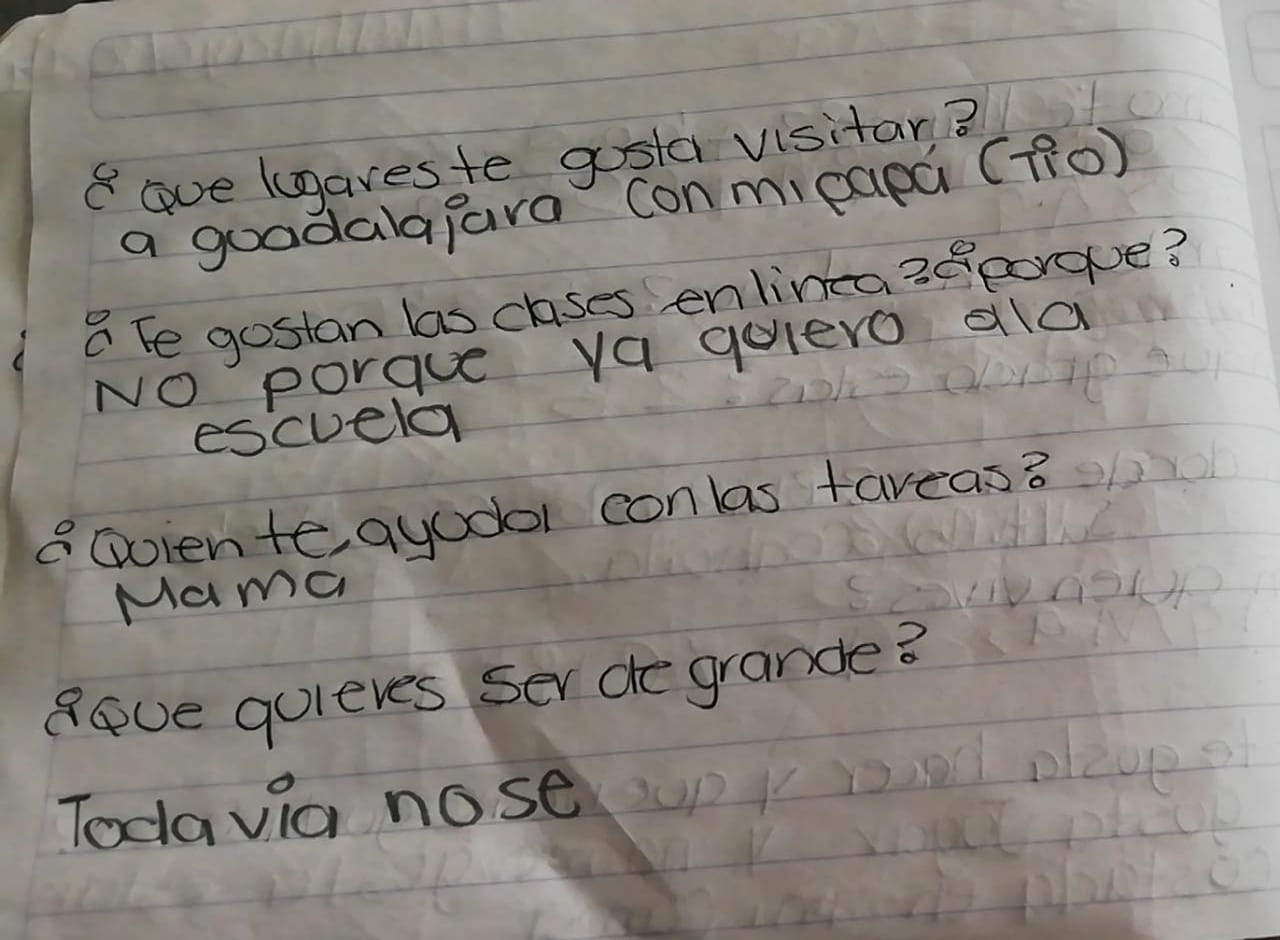 ¿Que lugares te gusta visitar?
a guadalajara con mi papá (Tio)
¿Te gostan las clases en linea? ¿porque?
NO porque ya quiero a la
escuela
¿Quien te ayuda con las tareas?
Mama
¿Que quieres ser de grande?
Todavia no se